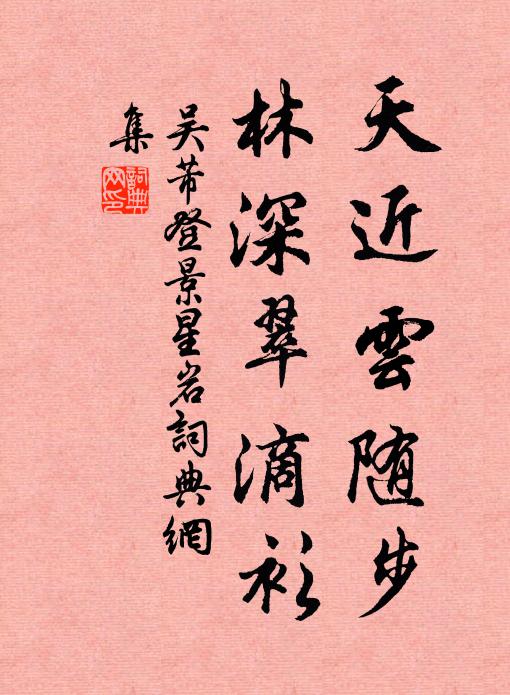 天近雲随步
林深翠滴衫
吴芾登景星岩詞典網
集
詞典网印